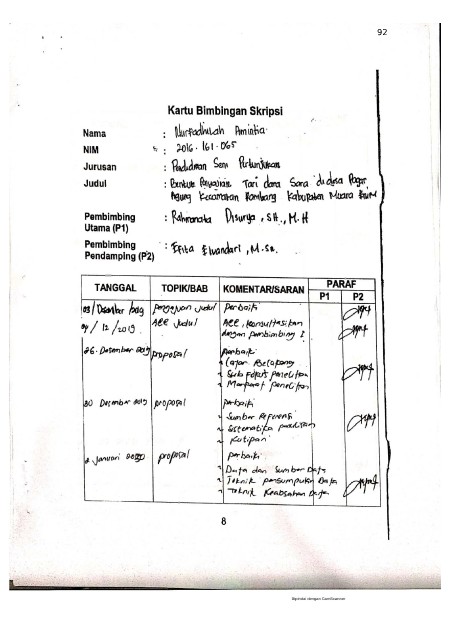 92
Kartu Bimbingan Skripsi
Nama : Nurfadhilah Amintia
NIM : 2016.161.065
Jurusan : Pendidikan Seni Pertunjukan
Judul : Bentuk Penyajian Tari dana Sara di desa Pagar
Agung Kecamatan Rambang Kabupaten Muara Enim
Pembimbing Utama (P1) : Rahmanata Disurya, SH., M.H
Pembimbing Pendamping (P2) : Efita Elvandari, M.Sn.
TANGGAL TOPIK/BAB KOMENTAR/SARAN PARAF
P1 P2
03/Desember/2019 pengajuan Judul perbaiki
04/12/2019 ACC Judul ACC, konsultasikan
dengan pembimbing I
26. Desember 2019 proposal perbaiki
- Latar Belakang
- Sub Fokus penelitian
- Manfaat penelitian
30 Desember 2019 proposal perbaiki
- Sumber Referensi
- Sistematika penulisan
- Kutipan
2 Januari 2020 proposal perbaiki
- Data dan Sumber Data
- Teknik pengumpulan Data
- Teknik Keabsahan Data
8
Dipindai dengan CamScanner